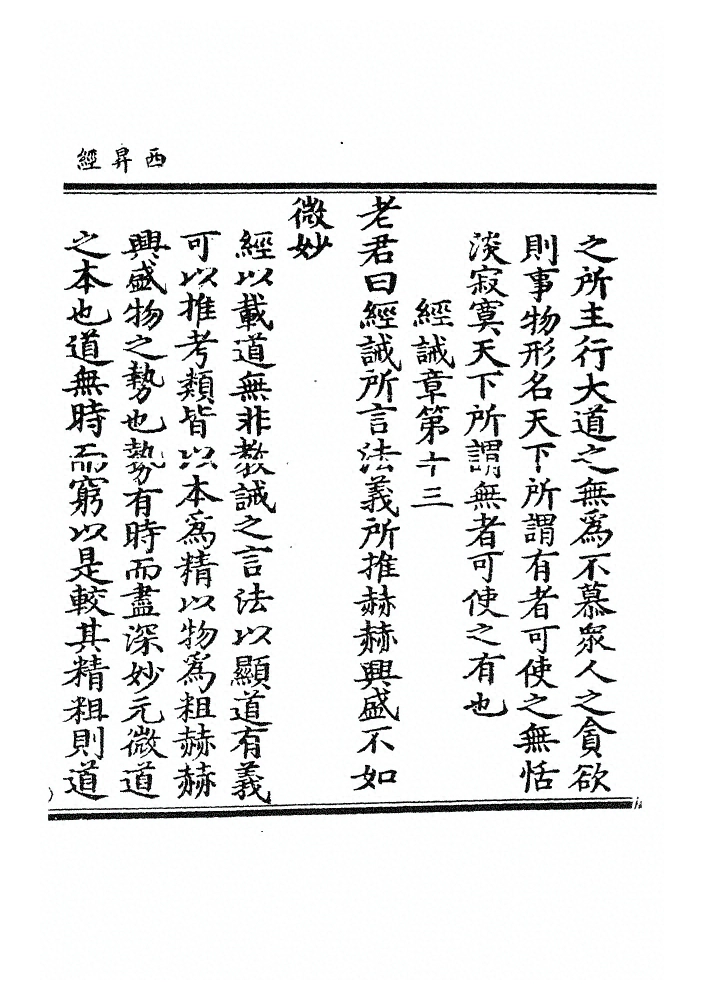 西昇經
之所主行大道之無為不慕衆人之貪欲
則事物形名天下所謂有者可使之無恬
淡寂寞天下所謂無者可使之有也
經誡章第十三
老君曰經誡所言法義所推赫赫興盛不如
微妙
經以載道無非教誡之言法以顯道有義
可以推考類皆以本為精以物為粗赫赫
興盛物之勢也勢有時而盡深妙元微道
之本也道無時而窮以是較其精粗則道